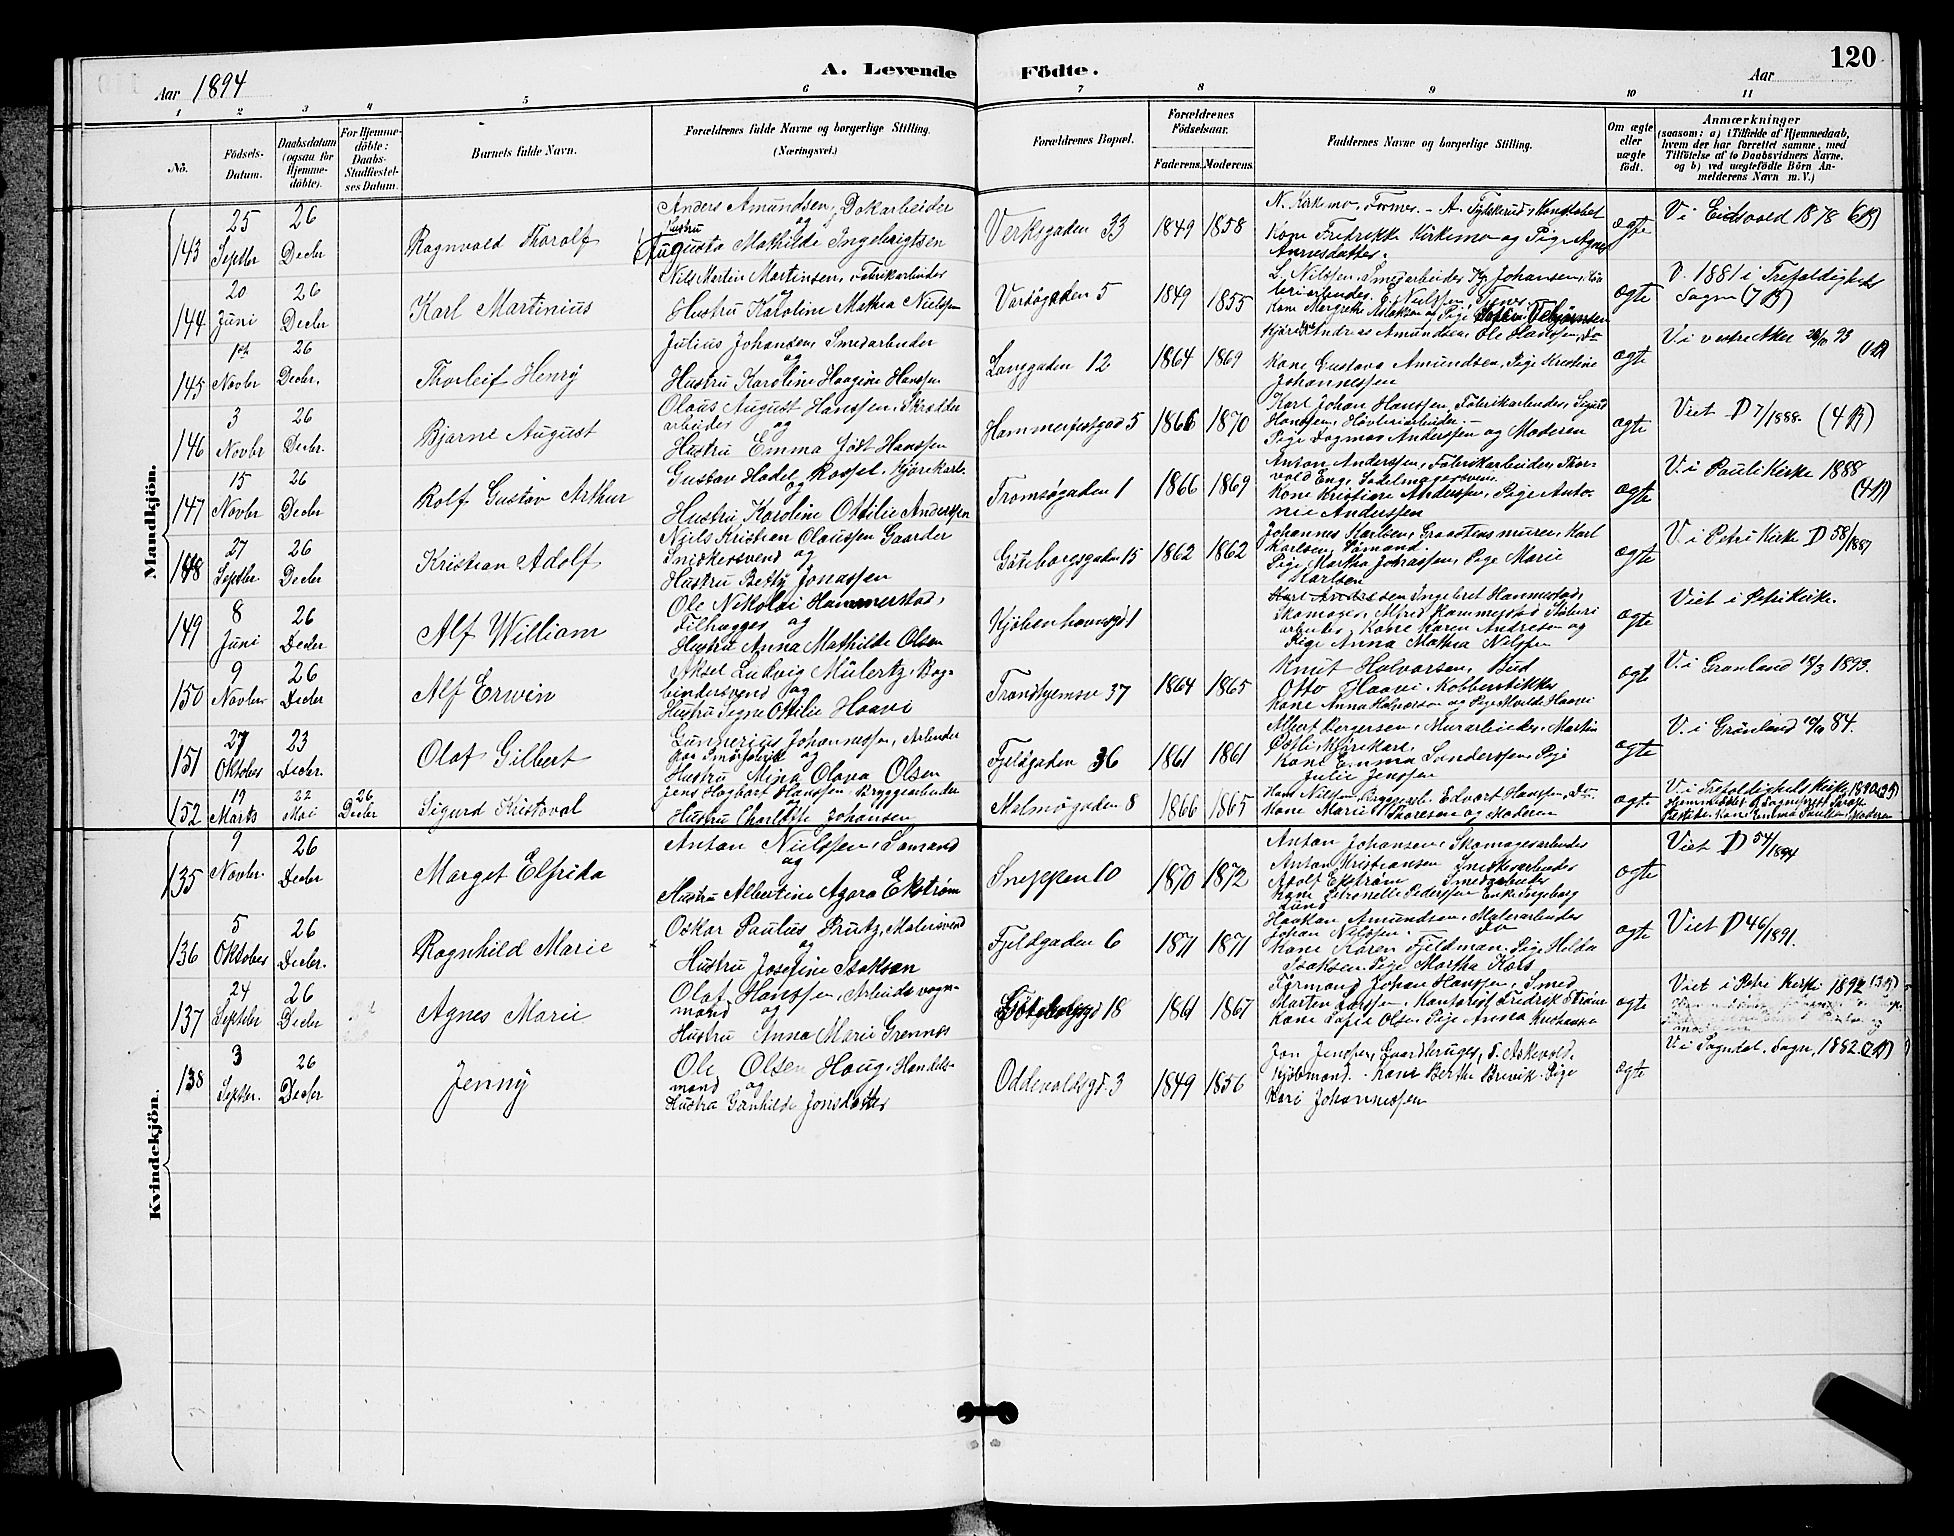 120
Aar 1894
A. Levende Födte.
Aar
1 2 3 4 5 6 7 8 9 10 11
No.
Födsels-Datum.
Daabsdatum (ogsaa for Hjemme-döbte).
For Hjemme-döbte: Daabs-Stadfæstel-ses Datum.
Barnets fulde Navn.
Forældrenes fulde Navne og borgerlige Stilling. (Næringsvei.)
Forældrenes Bopæl.
Forældrenes Födselsaar.
Faderens. Moderens.
Faddernes Navne og borgerlige Stilling.
Om ægte eller uægte födt.
Anmærkninger
(saasom: a) i Tilfælde af Hjemmedaab, hvem der har forrettet samme, med Tilföielse af to Daabsvidners Navne, og b) ved uægtefödte Börn An-melderens Navn m. V.)
Mandkjön.
143 25 Septbr 26 Decbr Ragnvald Thoralf
Anders Amundsen, Dokarbeider
og
Hustru Augusta Mathilde Ingebrigtsen
Verksgaden 33 1849 1858
N. Kirkemo, Former. - A. Fylskerud, Konstabel
Kone Fredrikke Kirkemo og Pige Agnes
Annesdatter.
ægte V. i Eidsvold 1878 (6B)
144 20 Juni 26 Decbr Karl Martinius
Nils Martin Martinsen, Fabrikarbeider
og
Hustru Karoline Mathea Nielsen
Vardøgaden 5 1849 1855
L. Nilssen, Smedarbeider
ægte V. 1881 i Trefoldigheds
Sogn (7B)
145 1ste Novbr 26 Decbr. Thorleif Henry
Julius Johansen, Smedarbeider
og
Hustru Karoline Haagine Hanssen
Langgaden 12 1864 1869
Andreas Amundsen, Ole Hanssen, Do
Kone Gustava Amundsen, Pige Kristine
Johannessen
ægte V. i vestre Aker 93 (1B)
146 3 Novbr 26 Decbr. Bjarne August
Olaus August Hanssen, Skrædder
arbeider og
Hustru Emma Jöst Hanssen
Hammerfestgad 5 1866 1870
Karl Johan Hanssen, Fabrikarbeider, Sigurd
Hanssen, Høvleriarbeider. -
Pige Dagmar Anderssen og Moderen
ægte Viet D 7/1888. (4B)
147 15 Novbr 26 Decbr Rolf Gustav Arthur
Gustav Hadel Rosset, Kjørekarl
og
Hustru Karoline Ottilie Anderssen
Tromsøgaden 1 1866 1869
Anton Anderssen, Fabrikarbeider, Thor-
vald Eng, Sadelmagersvend.
Kone Kristiane Anderssen, Pige Anto-
nie Anderssen
ægte V. i Pauli Kirke 1888 (4B)
148 27 Septbr. 26 Decbr Kristian Adolf
Niels Kristian Olaussen Gaarder
Snedkersvend og
Hustru Betty Jonassen
Gøteborggaden 15 1862 1862
Johannes Karlsen, Graastensmurer, Karl
Karlsen, Sømand.
Pige Martha Johnassen, Pige Marie
Karlsen
ægte V. i Petri Kirke D 58/1887
149 8 Juni 26 Decbr Alf William
Ole Nikolai Hammerstad,
Filhugger og
Hustru Anna Mathilde Olsen
Kjøbenhavnsgd 1
Ingebret Hammestad,
Skomager, Alfred Hammerstad
arbeider, Kone Karen Andresen og
Pige Anna Mathea Nilsen
ægte Viet i Petri Kirke.
150 9 Novbr 26 Decbr Alf Erwin
Aksel Ludvig Mülertz, Bog-
bindersvend og
Hustru Signe Ottilie Haavi
Trondhjemsv 37 1864 1865
Knut Halvorsen, Bud
Otto Haavi, Kobberstikker
Kone Anna Halvorsen og Pige Mvilde Haavi
ægte V. i Grønland 18/3 1893.
151 27 Oktober 23 Decbr. Olaf Gilbert
Gunnerius Johannessen, Arbeider
paa Smørfabrik og
Hustru Mina Olava Olsen
Fjeldgaden 36 1861 1861
Albert Bergersen, Murarbeider, Martin
Kjørekarl
Kone Emma Sanderssen, Pige
Julie Jenssen
ægte V. i Grønland 84.
152 19 Marts 22 Mai 26 Decbr Sigurd Kristoval
Jens Hagbart Hanssen, Bryggearbeider
og
Hustru Charlotte Johansen
Malmøgaden 8 1866 1865
Hans Nilssen, Bryggearb. Edvart Hanssen, Do
Kone Marie Thoresen og Moderen
ægte V. i Trefoldigheds Kirke 1890
Kvindekjön.
135 9 Novbr. 26 Decbr Marget Elfrida
Anton Nielssen, Sømand
og
Hustru Albertine Agara Ekstrøm
Sneppen 10 1870 1872
Anton Johansen, Skomagerarbeider
Anton Kristiansen Snedkerarbeider
Adolf Ekstrøm Smedarbeider
Kone Petronelle Pederssen Enke Ingeborg
Lund
ægte Viet D 54/1894
136 5 Oktober 26 Decbr. Ragnhild Marie
Oskar Paulus Prutz, Malersvend
og
Hustru Josefine Isaksen
Fjeldgaden 6 1871 1871
Haakon Amundsen, Malerarbeider
Johan Nilssen. - Do
Kone Karen Fjeldman, Pige Hilda
Isaksen, Pige Martha Kors
ægte Viet D 46/1891.
137 24 Septbr 26 Decbr Agnes Marie
Olaf Hanssen, Arbeidsvogn-
mand og
Hustru Anna Marie Grennes
18 1861 1867
Formand Johan Hanssen, Smed
Marten Larssen, Kontorist Fredrik Strøm
Kone Sofie Olsen Pige Anna Kristiansen
ægte Viet i Petri Kirke 1892
138 3 Septbr. 26 Decbr Jenny
Ole Olsen Haug, Handels-
mand og
Hustru Gunhilde Jonsdatter
Oddevoldsgd. 3 1849 1856
Jon Jenssen, Gaardbruger, T. Askevold,
Kjøbmand. - Kone Berthe Brevik. Pige
Kari Johannessen
ægte V. i Sogndal, Sogn, 1882 (2B)